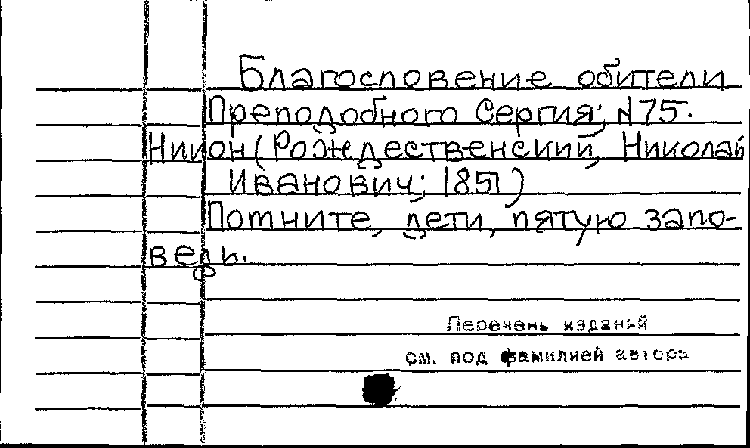 Благословение обители
Преподобного Сергия; N75.
Никон (Рождественский, Николай
Иванович; 1851)
Потните, дети, пятую запо-
ведь.
Перечень изданий
см. под фамилией автора